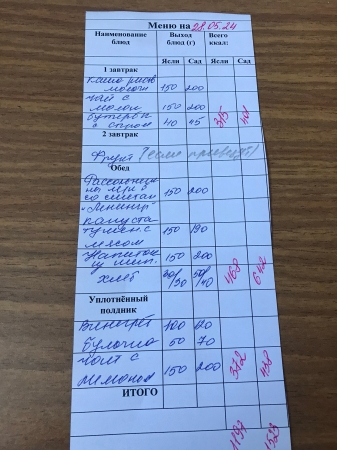 Меню на 28.05.24
Наименование блюд Выход блюд (г) Всего ккал:
Ясли Сад Ясли Сад
1 завтрак
каша рис
молочн 150 200
чай с
молок 150 200
бутерб
с сыром 40 45
2 завтрак
Фрукт (если привезут)
Обед
Рассольник
на м/б
со сметан 150 200
"Ленингр"
капуста
тушен. с
мясом 150 190
Напиток
из шип. 150 200
хлеб 468 642
Уплотнённый
полдник
Винегрет 100 120
булочка 50 70
чай с
лимоном 150 200 372 458
ИТОГО
1529